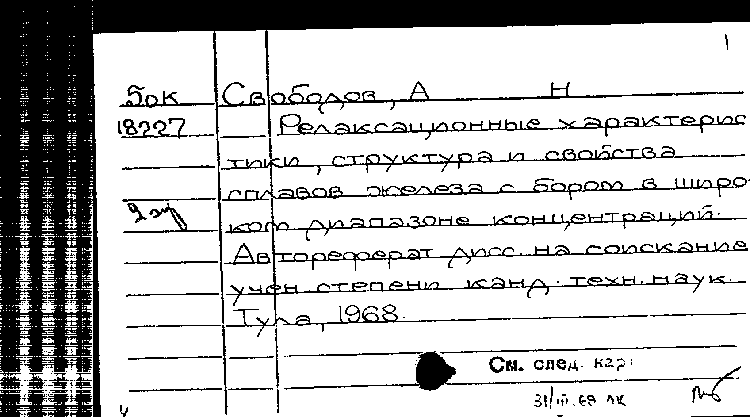 1
5ок Свободов, А Н
18227 Релаксационные характерис
тики, структура и свойства
сплавов железа с бором в широ-
2 эк ком диапазоне концентраций.
Автореферат дисс. на соискание
учен степени канд. техн. наук.
Тула, 1968.
См. след. кар
31/III.69 ЛК